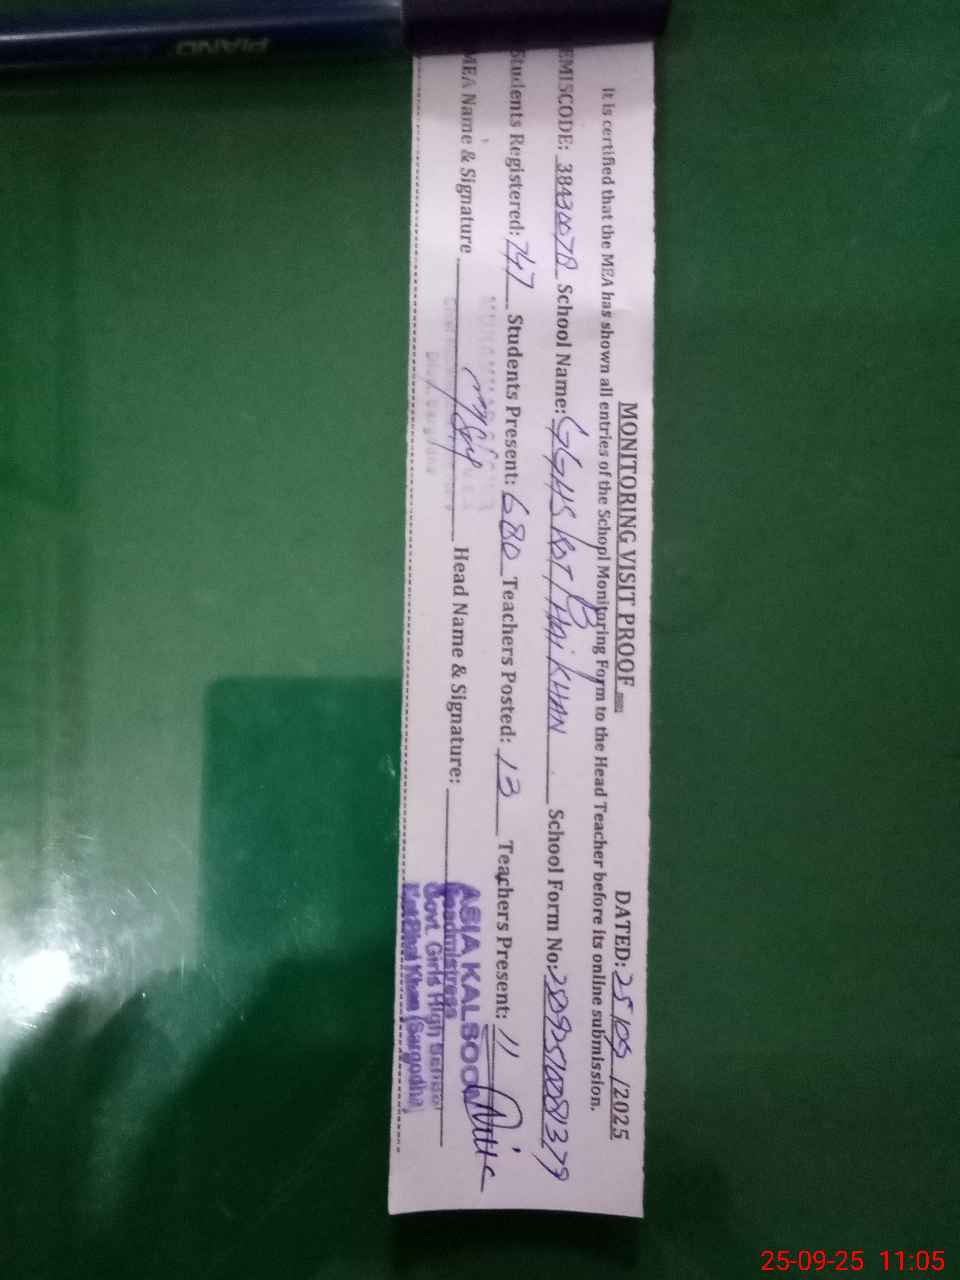 PIANO
MONITORING VISIT PROOF
DATED: 25/09/2025
It is certified that the MEA has shown all entries of the School Monitoring Form to the Head Teacher before its online submission.
EMISCODE: 38430078 School Name: GGHS KOT BHAI KHAN School Form No:
Students Registered: 747 Students Present: 680 Teachers Posted: 13 Teachers Present: 11
MEA Name & Signature Head Name & Signature:
ASIA KALSOOM
Headmistress
Govt. Girls High School
Kot Bhai Khan (Sargodha)
25-09-25 11:05